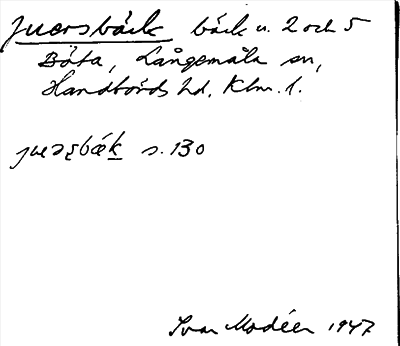 Juersbäck bäck u. 2 och 5
Böta, Långemåla sn,
Handbörds hd. Klm. l.
s. 130
Ivar Modéer 1947